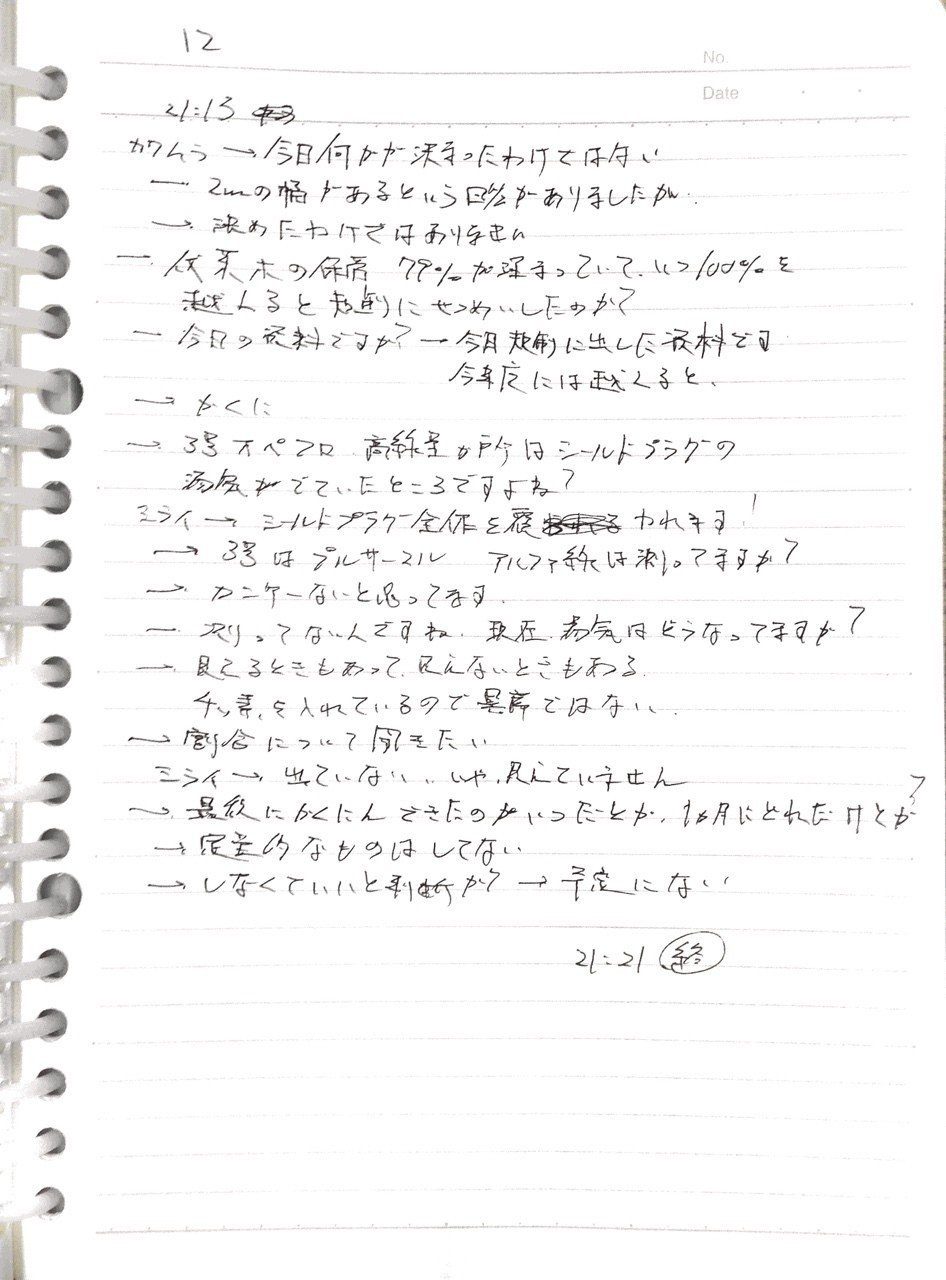 12
No.
Date
21:13
カワムラ → 今日何かが決まったわけではない
― 2mの幅があるという回答がありましたが.
→ 決めたわけではありません
― 伐採木の保管 79%が埋まっていて、いつ100%を
越えると規制にせつめいしたのか?
― 今日の資料ですか? → 今日規制に出した資料です
今年度には越えると、
→ かくに
→ 3号オペフロ 高線量か所はシールドプラグの
湯気がでていたところですよね?
ミライ → シールドプラグ全体を覆われます!
→ 3号はプルサーマル アルファ線は測ってますか?
→ カンケーないと思ってます.
― 測ってないんですね. 現在 湯気はどうなってますか?
→ 見えるときもあって、見えないときもある.
チッ素を入れているので異常ではない.
→ 割合について聞きたい
ミライ → 出ていない、いや、見えていません
→ 最後にかくにんできたのがいつだとか、1ヵ月にどれだけとか?
→ 定量的なものはしてない
→ しなくていいと判断か? → 予定にない
21:21 終